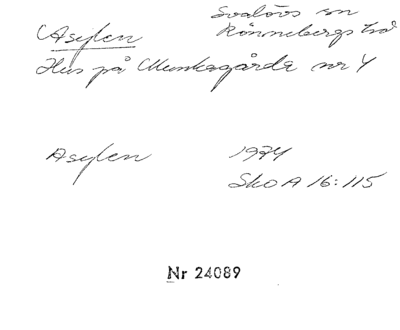 Asylen Svalövs sn
Rönnebergs hd
Hus på Munkagårda nr 4
Asylen 1974
Sko A 16:115
Nr 24089